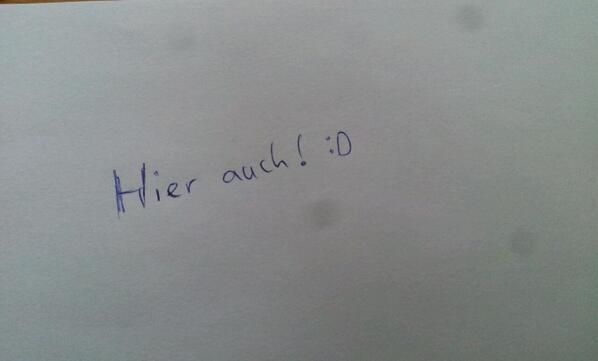 Hier auch! :D